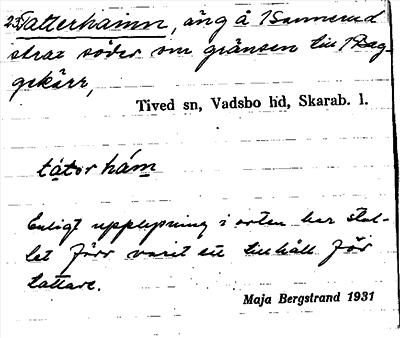 23. Tatterhamn, äng å 1 Sannerud
strax söder om gränsen till 1 Bag-
gekärr,
Tived sn, Vadsbo hd, Skarab. l.
tátər hám
Enligt upplysning i orten har stäl-
let förr varit ett tillhåll för
tattare.
Maja Bergstrand 1931